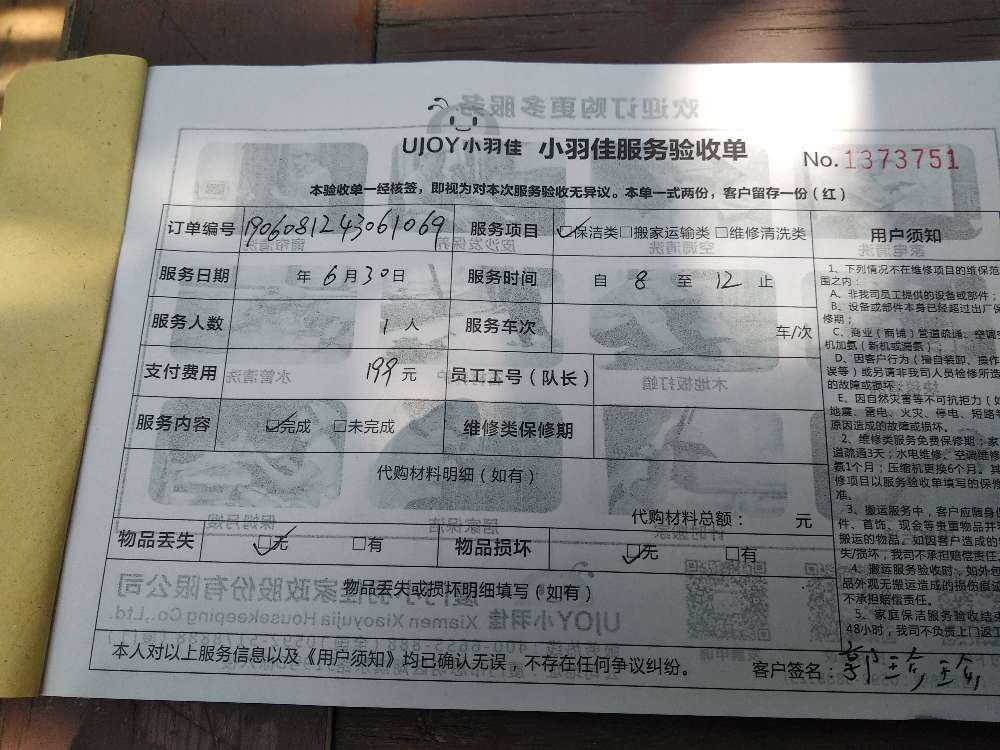 UJOY小羽佳 小羽佳服务验收单 No.1373751
本验收单一经核签，即视为对本次服务验收无异议。本单一式两份，客户留存一份（红）
订单编号 1906081243061069 服务项目 ☑保洁类□搬家运输类□维修清洗类
服务日期 年6月30日 服务时间 自 8 至 12 止
服务人数 1人 服务车次 车/次
支付费用 199元 员工工号（队长）
服务内容 ☑完成 □未完成 维修类保修期
代购材料明细（如有）
代购材料总额： 元
物品丢失 ☑无 □有 物品损坏 ☑无 □有
物品丢失或损坏明细填写（如有）
本人对以上服务信息以及《用户须知》均已确认无误，不存在任何争议纠纷。 客户签名：郭
用户须知
1、下列情况不在维修项目的维保范
围之内：
A、非我司员工提供的设备或部件；
B、设备或部件本身已经超过出厂保
修期；
C、商业（商铺）管道疏通、空调
机加氨（新机或漏氨）
D、因客户行为（擅自装卸、操作
误等）或另请非我司人员检修所造
的故障或损坏；
E、因自然灾害等不可抗拒力（如
地震、雷电、火灾、停电、短路
原因造成的故障或损坏。
2、维修类服务免费保修期：家
道疏通3天；水电维修、空调维修
氨1个月；压缩机更换6个月。其
修项目以服务验收单填写的保修
准。
3、搬运服务中，客户应随身
件、首饰、现金等贵重物品并
搬运的物品。如因客户造成的
失/损坏，我司不承担赔偿责任
4、搬运服务验收时，如外包
品外观无搬运造成的损伤痕迹
不承担赔偿责任。
5、家庭保洁服务验收结束
48小时，我司不负责上门返工
欢迎订购更多服务
厦门小羽佳家政股份有限公司
Xiamen Xiaoyujia Housekeeping Co., Ltd.
UJOY小羽佳